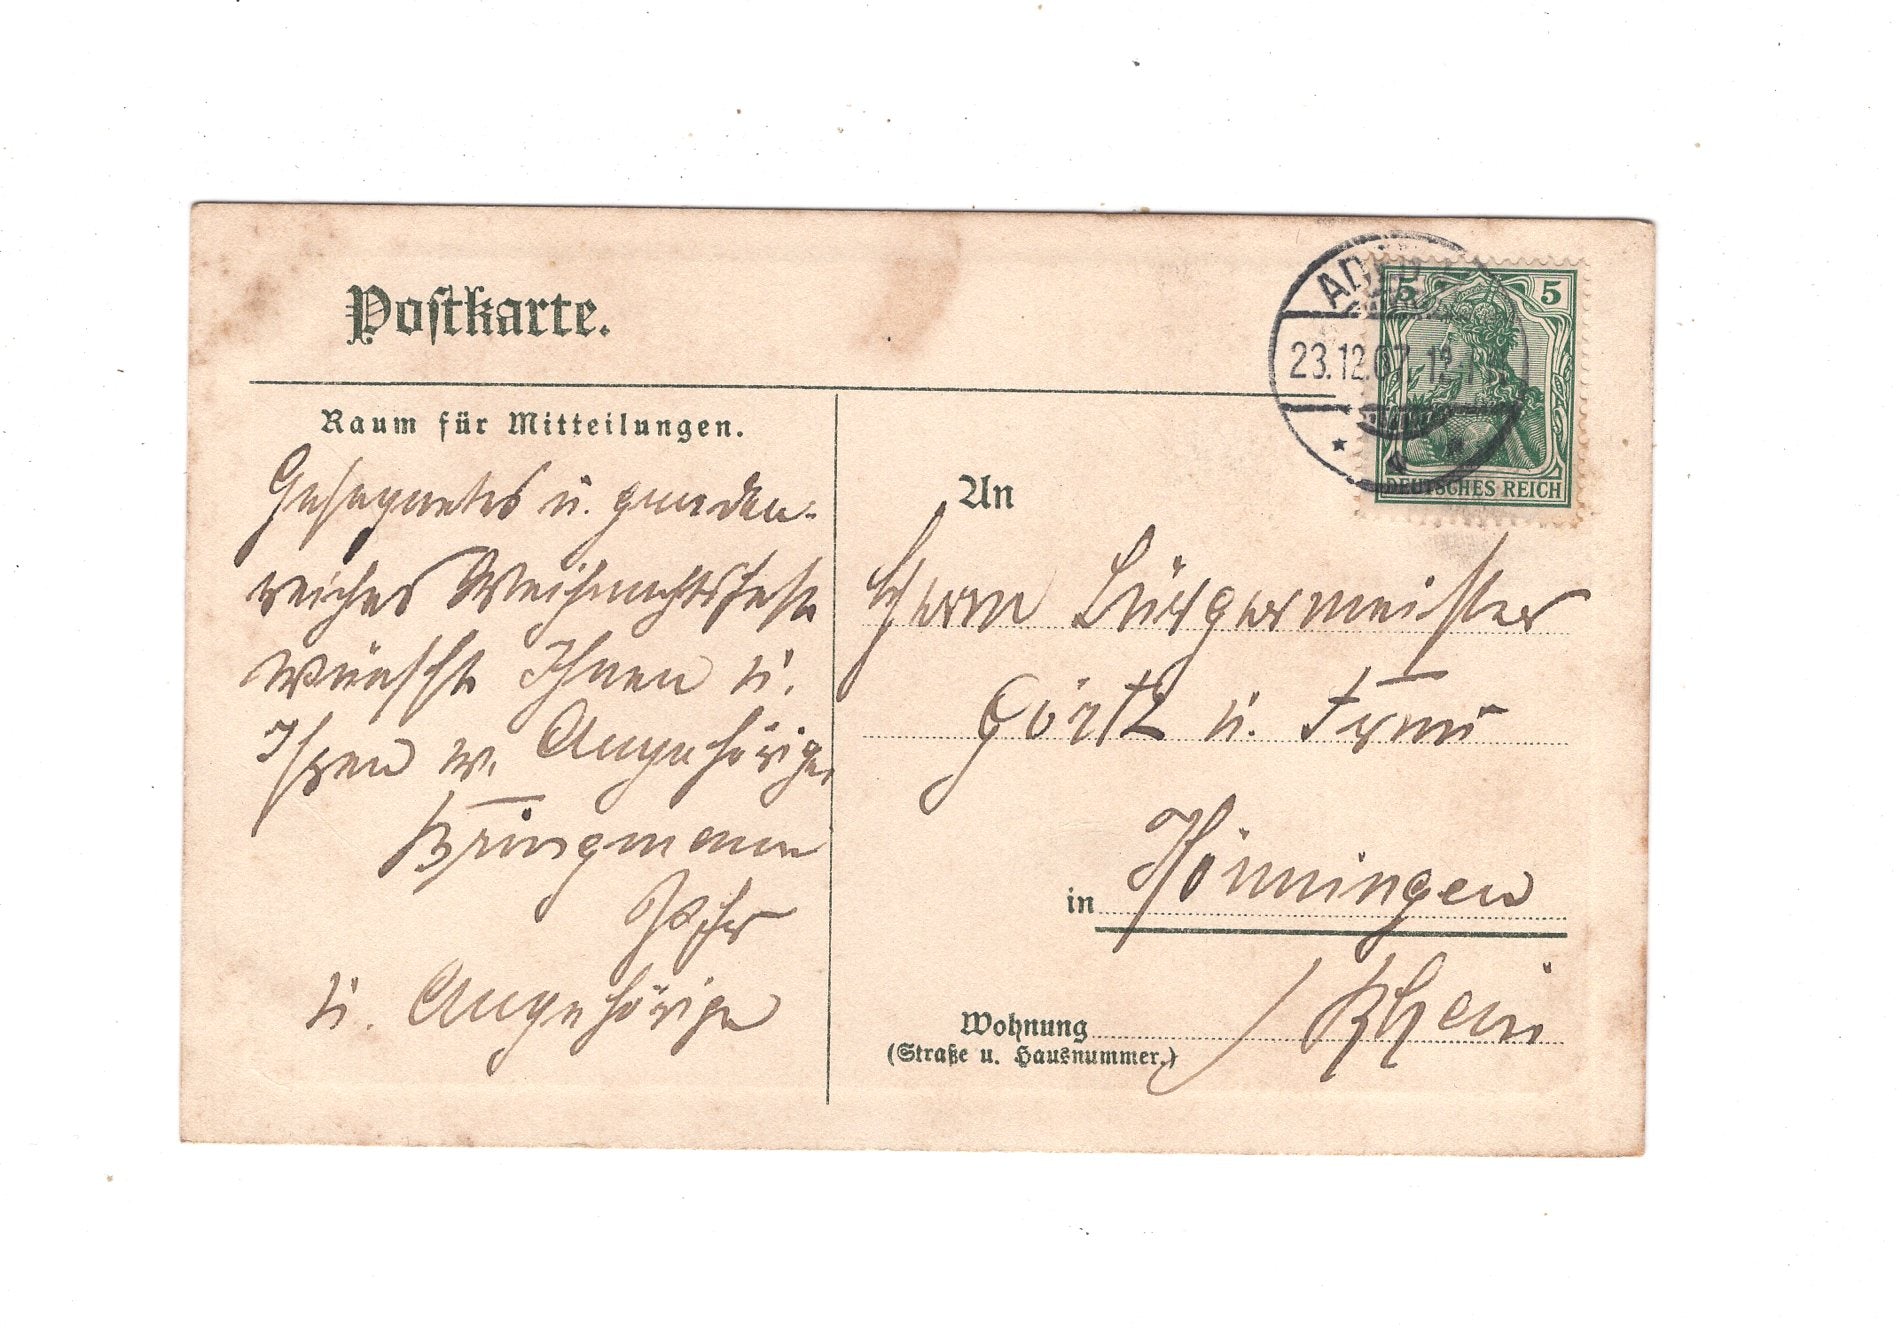 Postkarte.
Raum für Mitteilungen.
Gesegnetes u. gnaden-
reiches Weihnachtsfest
wünscht Ihnen u.
Ihren w. Angehörigen
Bringmann
u. Angehörige
5 5
DEUTSCHES REICH
23.12.07. 12-1
An
Herrn Bürgermeister
Görtz u. Frau
in Hönningen
/Rhein
Wohnung
(Straße u. Hausnummer.)